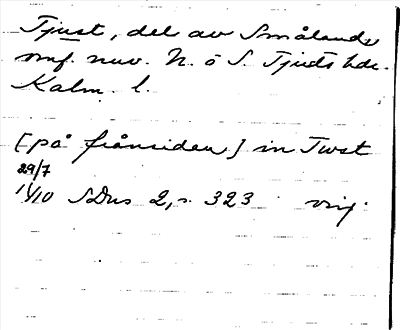 Tjust, del av Smålands
omf. nuv. N. o S. Tjusts hde.
Kalm. l.
[på frånsidan] in Twst
29/7
1410 SDns 2, s. 323 orig.